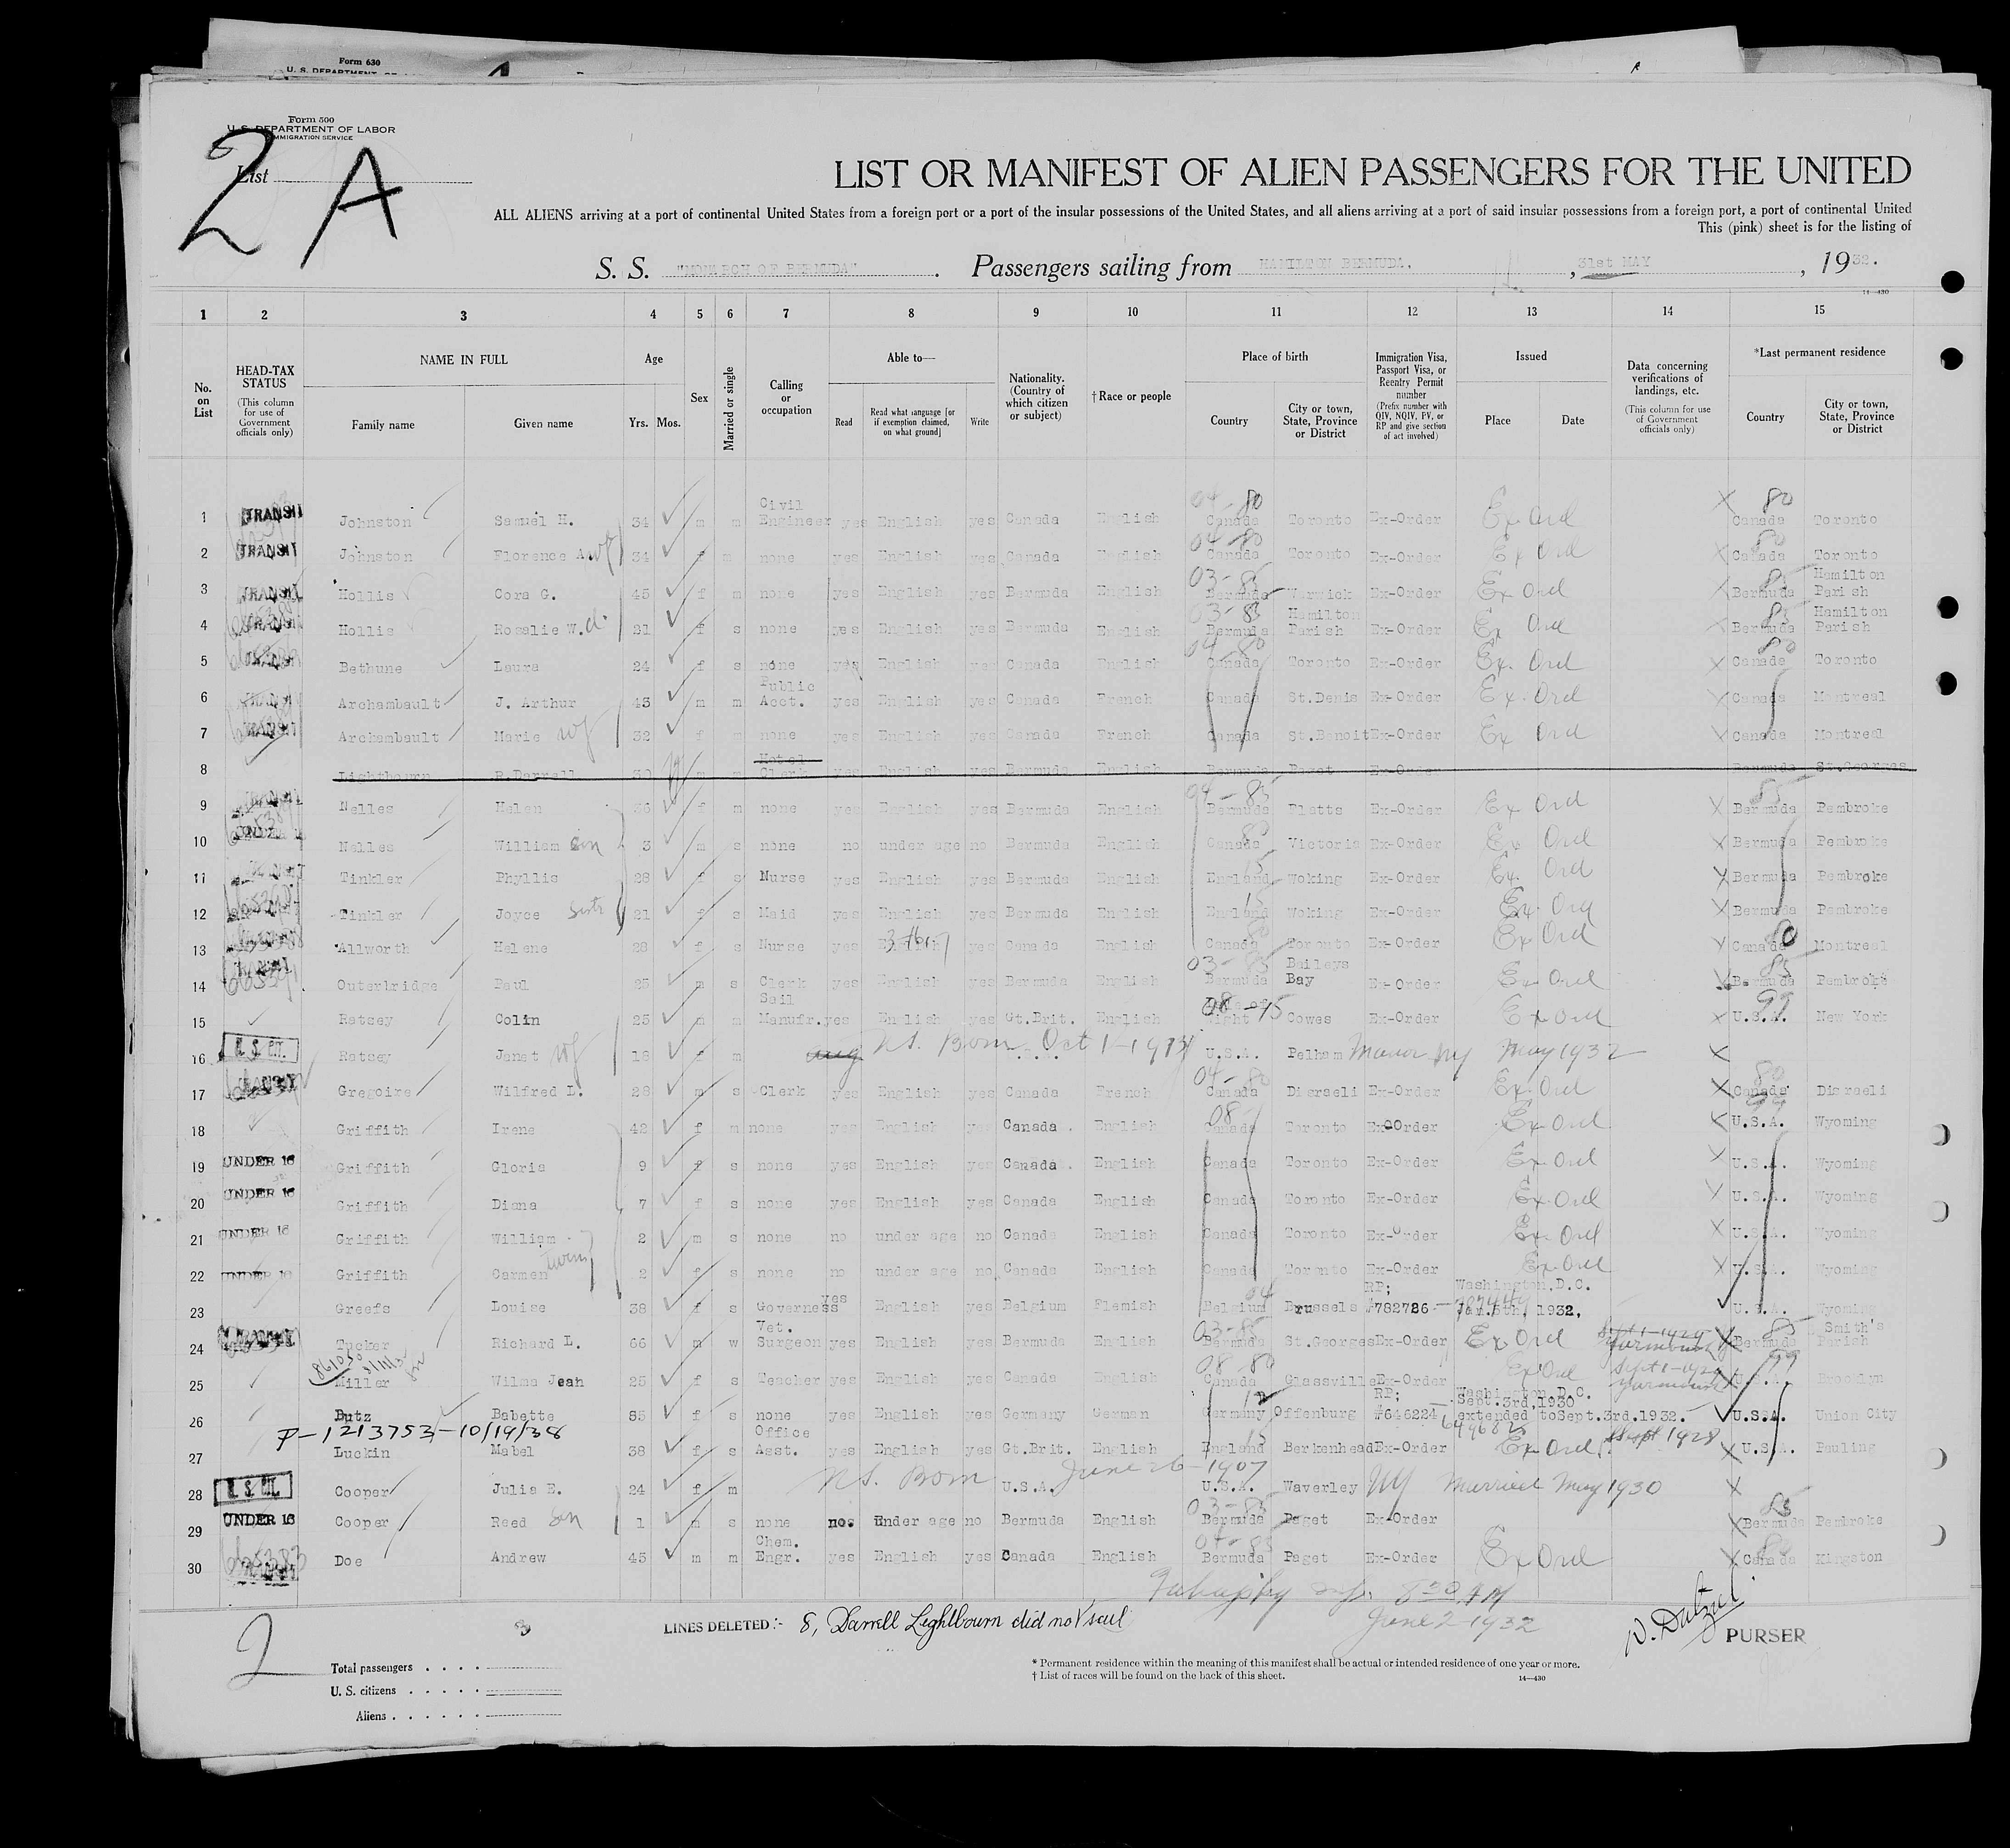 Form 630
U. S. DEPARTMENT OF
Form 500
U. S. DEPARTMENT OF LABOR
IMMIGRATION SERVICE
List
2 A
LIST OR MANIFEST OF ALIEN PASSENGERS FOR THE UNITED
ALL ALIENS arriving at a port of continental United States from a foreign port or a port of the insular possessions of the United States, and all aliens arriving at a port of said insular possessions from a foreign port, a port of continental United
This (pink) sheet is for the listing of
S. S. "MONARCH OF BERMUDA" . Passengers sailing from HAMILTON BERMUDA. , 31st MAY , 1932.
14—430
1 2 3 4 5 6 7 8 9 10 11 12 13 14 15
No. on List
HEAD-TAX STATUS (This column for use of Government officials only)
NAME IN FULL Family name Given name
Age Yrs. Mos.
Sex
Married or single
Calling or occupation
Able to— Read Read what language [or if exemption claimed, on what ground] Write
Nationality. (Country of which citizen or subject)
†Race or people
Place of birth Country City or town, State, Province or District
Immigration Visa, Passport Visa, or Reentry Permit number (Prefix number with QIV, NQIV, PV, or RP and give section of act involved)
Issued Place Date
Data concerning verifications of landings, etc. (This column for use of Government officials only)
*Last permanent residence Country City or town, State, Province or District
1 TRANSIT Johnston Samuel H. 34 m m Civil Engineer yes English yes Canada English 04-80 Canada Toronto Ex-Order Ex Ord X 80 Canada Toronto
2 TRANSIT Johnston Florence A. wf 34 f m none yes English yes Canada English 04-80 Canada Toronto Ex-Order Ex Ord X 80 Canada Toronto
3 TRANSIT Hollis Cora G. 45 f m none yes English yes Bermuda English 03-85 Bermuda Warwick Ex-Order Ex Ord 85 Bermuda Hamilton Parish
4 Hollis Rosalie W. d. 21 f s none yes English yes Bermuda English 03-85 Bermuda Hamilton Parish Ex-Order Ex Ord 85 Bermuda Hamilton Parish
5 Bethune Laura 24 f s none yes English yes Canada English 04-80 Canada Toronto Ex-Order Ex. Ord X 80 Canada Toronto
6 Archambault J. Arthur 43 m m Public Acct. yes English yes Canada French Canada St.Denis Ex-Order Ex. Ord X Canada Montreal
7 Archambault Marie wf 32 f m none yes English yes Canada French Canada St.Benoit Ex-Order Ex Ord X Canada Montreal
8 Lightbourn R.Darrell 30 m m Hotel Clerk yes English yes Bermuda English Bermuda Paget Ex-Order Bermuda St.Georges
9 Nelles Helen 36 f m none yes English yes Bermuda English 04-85 Bermuda Flatts Ex-Order Ex Ord X 85 Bermuda Pembroke
10 Nelles William son 3 m s none no under age no Bermuda English 80 Canada Victoria Ex-Order Ex Ord X Bermuda Pembroke
11 Tinkler Phyllis 28 f s Nurse yes English yes Bermuda English 15 England Woking Ex-Order Ex. Ord X Bermuda Pembroke
12 Tinkler Joyce sister 21 f s Maid yes English yes Bermuda English 15 England Woking Ex-Order Ex. Ord X Bermuda Pembroke
13 Allworth Helene 28 f s Nurse yes English yes Canada English 80 Canada Toronto Ex-Order Ex Ord X 80 Canada Montreal
14 Outerbridge Paul 25 m s Clerk yes English yes Bermuda English 03-85 Bermuda Baileys Bay Ex-Order Ex Ord X 85 Bermuda Pembroke
15 Ratsey Colin 25 m m Sail Manufr. yes English yes Gt.Brit. English 08-15 Isle of Wight Cowes Ex-Order Ex Ord X 99 U.S.A. New York
16 U. S. CIT. Ratsey Janet wf 18 f m US. Born Oct 1-1913 U.S.A. Pelham Manor NY May 1932 X
17 TRANSIT Gregoire Wilfred L. 28 m s Clerk yes English yes Canada French 04-80 Canada Disraeli Ex-Order Ex Ord X 80 Canada Disraeli
18 Griffith Irene 42 f m none yes English yes Canada. English 08- Canada Toronto Ex-Order Ex Ord X 99 U.S.A. Wyoming
19 UNDER 16 Griffith Gloria 9 f s none yes English yes Canada. English Canada Toronto Ex-Order Ex Ord X U.S.A. Wyoming
20 UNDER 16 Griffith Diana 7 f s none yes English yes Canada English Canada Toronto Ex-Order Ex. Ord X U.S.A. Wyoming
21 UNDER 16 Griffith William 2 m s none no under age no Canada English Canada Toronto Ex-Order Ex. Ord X U.S.A. Wyoming
22 UNDER 16 Griffith Carmen twins 2 f s none no under age no Canada English Canada Toronto Ex-Order Ex Ord X U.S.A. Wyoming
23 Greefs Louise 38 f s Governess yes English yes Belgium Flemish 04 Belgium Brussels RP; #782726 Washington,D.C. Jan.5th, 1932, U.S.A. Wyoming
24 Tucker Richard L. 66 m w Vet. Surgeon yes English yes Bermuda English 03-85 Bermuda St.Georges Ex-Order Ex Ord Sept 1-1929 Yarmouth X 85 Bermuda Smith's Parish
25 Miller Wilma Jean 25 f s Teacher yes English yes Canada English 08-80 Canada Glassville Ex-Order Ex Ord Sept 1-1929 Yarmouth X 99 U.S.A. Brooklyn
26 Butz Babette 55 f s none yes English yes Germany German 12 Germany Offenburg RP; #646224 Washington,D.C. Sept.3rd,1930 extended toSept.3rd.1932. U.S.A. Union City
P-1213753-10/19/38
27 Luckin Mabel 38 f s Office Asst. yes English yes Gt.Brit. English 15 England Berkenhead Ex-Order Ex Ord. Sept 1928 X U.S.A. Pauling
28 U. S. CIT. Cooper Julia E. 24 f m US. Born U.S.A. June 26-1907 U.S.A. Waverley NY Married May 1930 X
29 UNDER 16 Cooper Reed son 1 m s none no. Under age no Bermuda English 03-85 Bermuda Paget Ex-Order X 85 Bermuda Pembroke
30 Doe Andrew 45 m m Chem. Engr. yes English yes Canada English 04-85 Bermuda Paget Ex-Order Ex Ord X 80 Canada Kingston
8 30 AM
June 2-1932
2
LINES DELETED:- 8, Darrell Lightbourn did not sail
PURSER
Total passengers
U. S. citizens
Aliens
* Permanent residence within the meaning of this manifest shall be actual or intended residence of one year or more.
† List of races will be found on the back of this sheet.
14—430